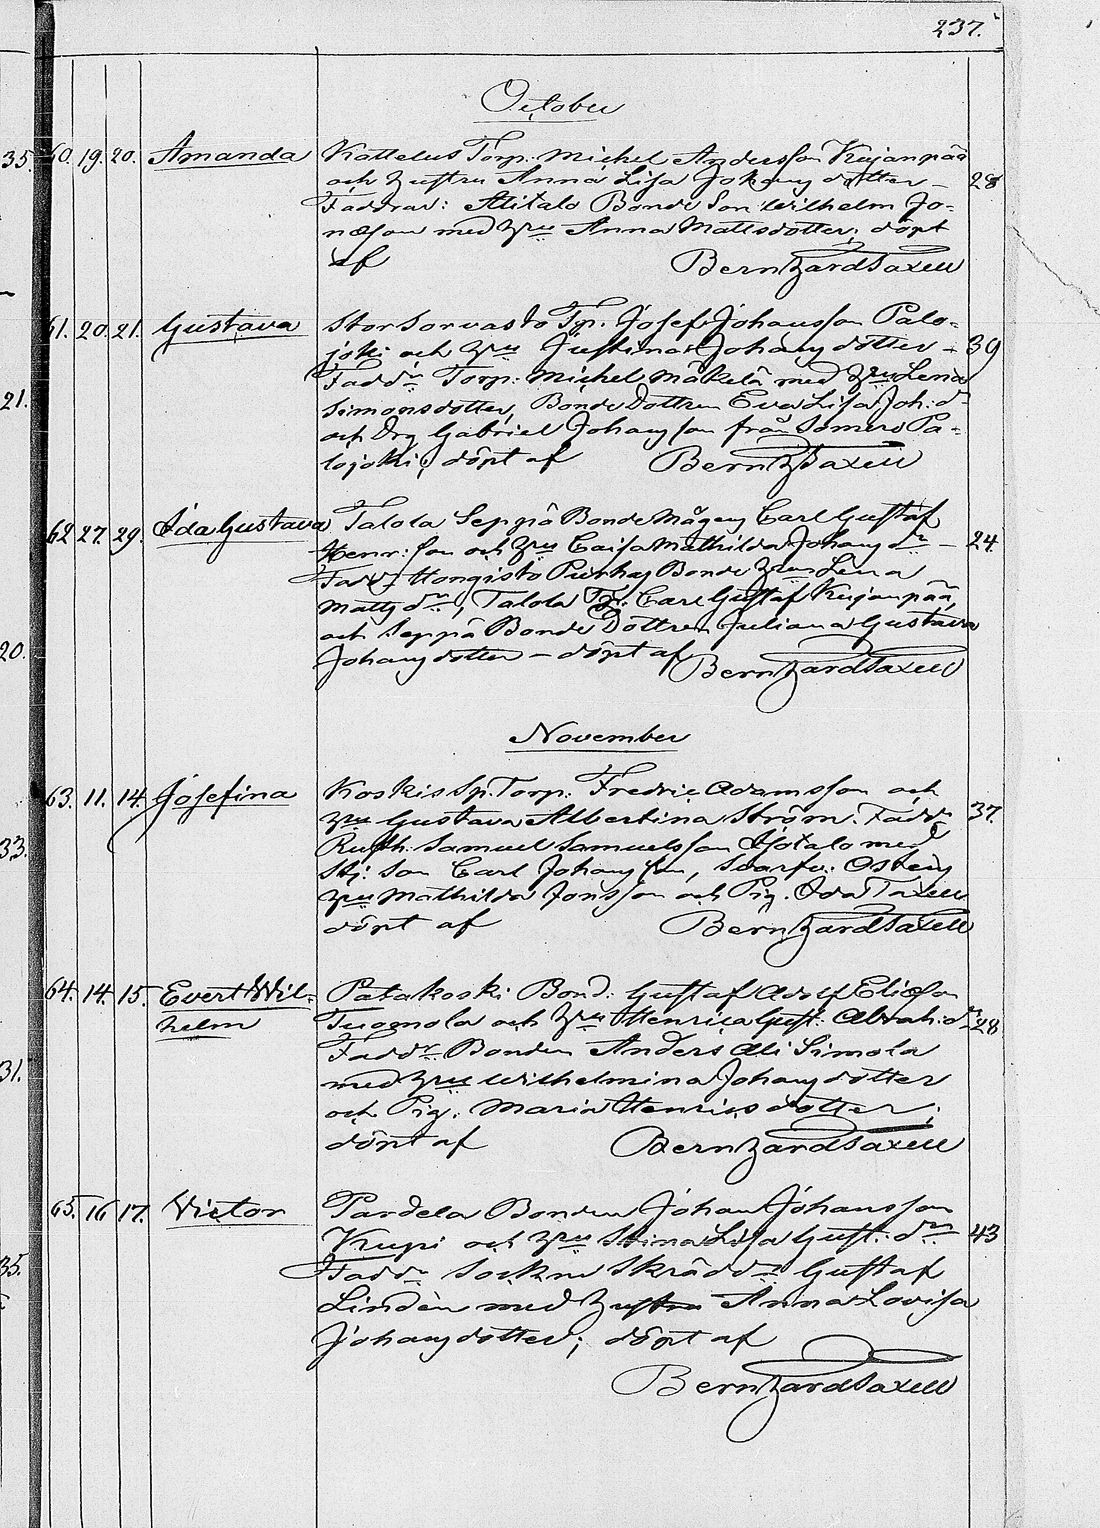 237.
October
35. 60. 19. 20. Amanda Kattelus Torp. Michel Andersson Kujanpää
och hustru Anna Lisa Johansdotter – 28
Faddrar: Alitalo Bonde Son Wilhelm Jo-
nasson med hru Anna Mattsdotter; döpt
af Bernhard Taxell
61. 20. 21. Gustava StorSorvasto Tp. Josef Johansson Palo-
joki och hru Justina Johansdotter – 39
Faddr Torp: Michel Mäkelä med hru Lena
21. Simonsdotter, Bonde Dottren Eva Lisa Joh: dr
och Drg Gabriel Johansson från Somero Pa-
lojoki; döpt af Bernh Taxell
62 27. 29. Ida Gustava Talola Seppä Bonde Mågen Carl Gustaf
Henr: son och hru Caisa Mathilda Johans dr – 24
Fadd. Hongisto Bonde hru Lena
Matts dr, Talola Tp. Carl Gustaf Kujanpää,
och Seppä Bonde Dottren Juliana Gustava
20. Johansdotter – döpt af Bernhard Taxell
November
63. 11. 14. Josefina Koskis Sp. Torp. Fredric Adamsson och
hru Gustava Albertina Ström. Faddr 37.
33. Rusth. Samuel Samuelsson Isotalo med
Carl Johansson,
hru Mathilda Jonsson och Pig. Ida Taxell
döpt af Bernhard Taxell
64. 14. 15. Evert Wil- Patakoski Bond: Gustaf Adolf Eliasson
helm Tuomola och hru Henrica Gust: Abrah: dr 28
31. Faddr Bonden Anders Ali Simola
med hru Wilhelmina Johansdotter
och Pig. Maria Henricsdotter;
döpt af Bernhard Taxell
65. 16 17. Victor Pardela Bonden Johan Johansson
Krupi och hru Stina Lisa Gust: dr 43
35. Faddr Sockne Skräddr Gustaf
Lindèn med hustru Anna Lovisa
Johansdotter; döpt af
Bernhard Taxell